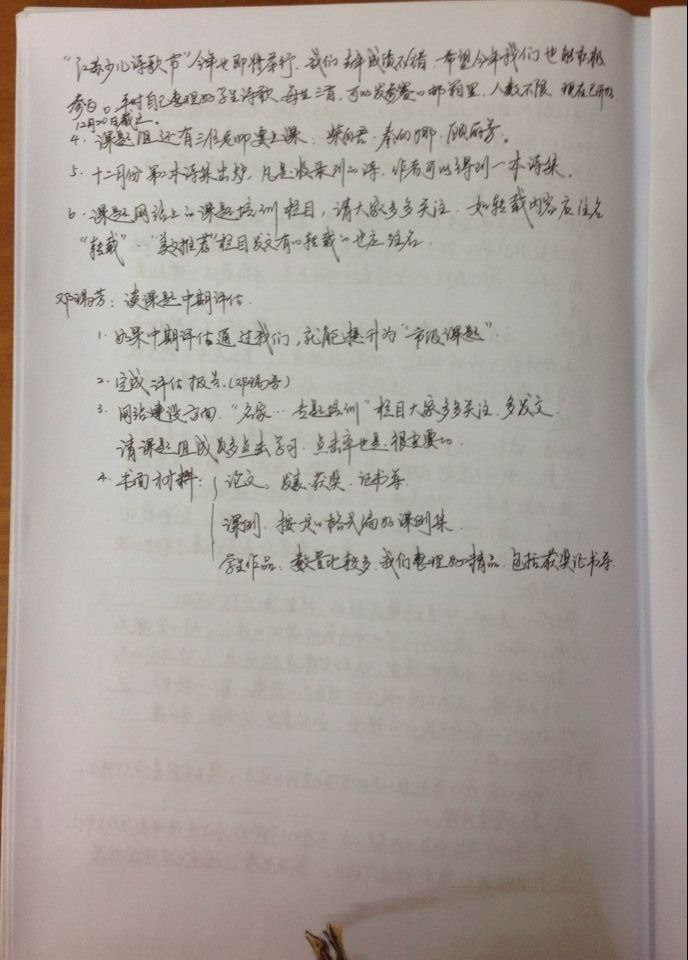 “江苏少儿诗歌节”今年也即将举行，我们去年成绩不错，希望今年我们也能积极
参与。平时自己整理好学生诗歌，每生三首，可以发参赛的邮箱里，人数不限，现在已开始
12月20日截止。
4. 课题组还有三位老师要上课：
5. 十二月份第二本诗集出炉，凡是收录到的诗，作者可以得到一本诗集。
6. 课题网站上的课题培训栏目，请大家多多关注，如转载内容应注名
“转载”。“美文推荐”栏目发文有的转载的也应注名。
谈课题中期评估
1. 如果中期评估通过我们，就能提升为“市级课题”。
2. 完成评估报告。
3. 网站建设方面，“名家…专题培训”栏目大家多多关注，多发文，
请课题组成员多点击学习，点击率也是很重要的。
4. 书面材料：论文：发表、获奖、证书等
课例：按一定的格式编好课例集
学生作品：数量比较多，我们整理好的精品，包括获奖证书等